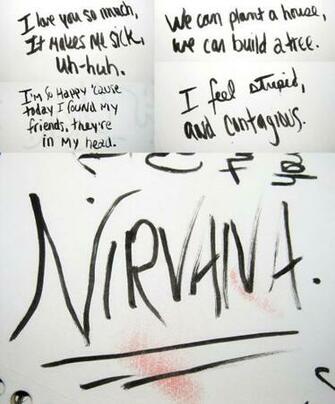 I love you so much,
It makes me sick,
uh-huh.
We can plant a house,
we can build a tree.
I'm so happy 'cause
today I found my
friends, they're
in my head.
I feel stupid,
and contagious.
NIRVANA.